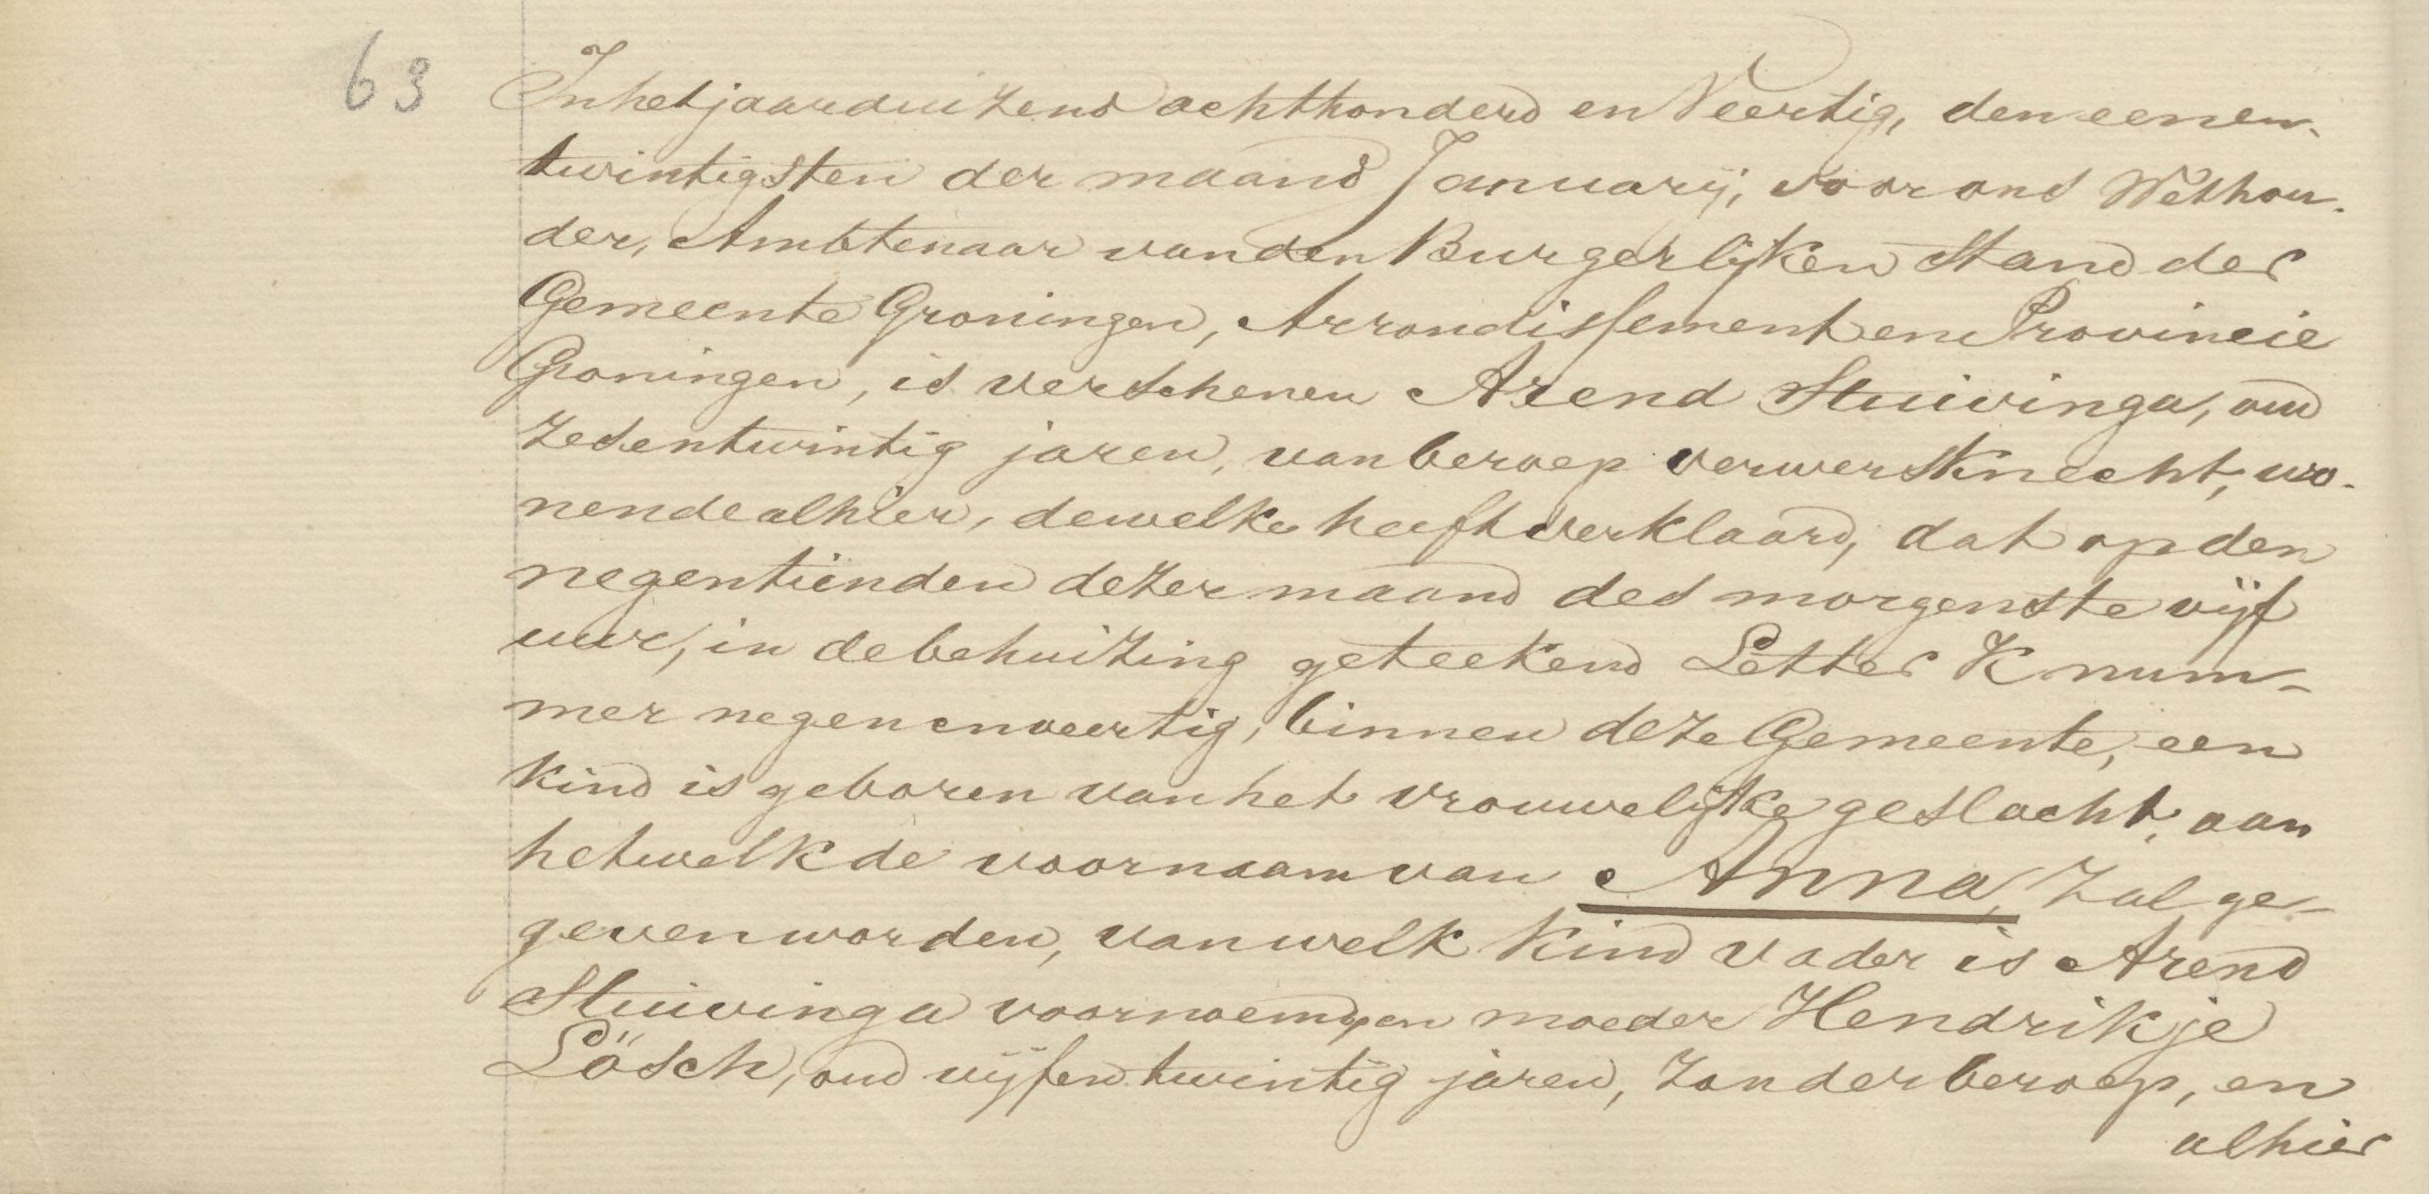 63
In het jaar duizend achthonderd en Veertig, den eenen-
twintigsten der maand Januarij, voor ons Wethou-
der, Ambtenaar van den Burgerlijken Stand der
Gemeente Groningen, Arrondissement en Provincie
Groningen, is verschenen Arend Stuivinga, oud
zesentwintig jaren, van beroep verwersknecht, wo-
nende alhier, dewelke heeft verklaard, dat op den
negentienden dezer maand des morgens te vijf
uur, in de behuizing geteekend Letter K num-
mer negenenveertig, binnen deze Gemeente, een
kind is geboren van het vrouwelijke geslacht, aan
hetwelk de voornaam van Anna, zal ge-
geven worden, van welk kind vader is Arend
Stuivinga voornoemd, en moeder Hendrikje
Lösch, oud vijfentwintig jaren, zonder beroep, en
alhier